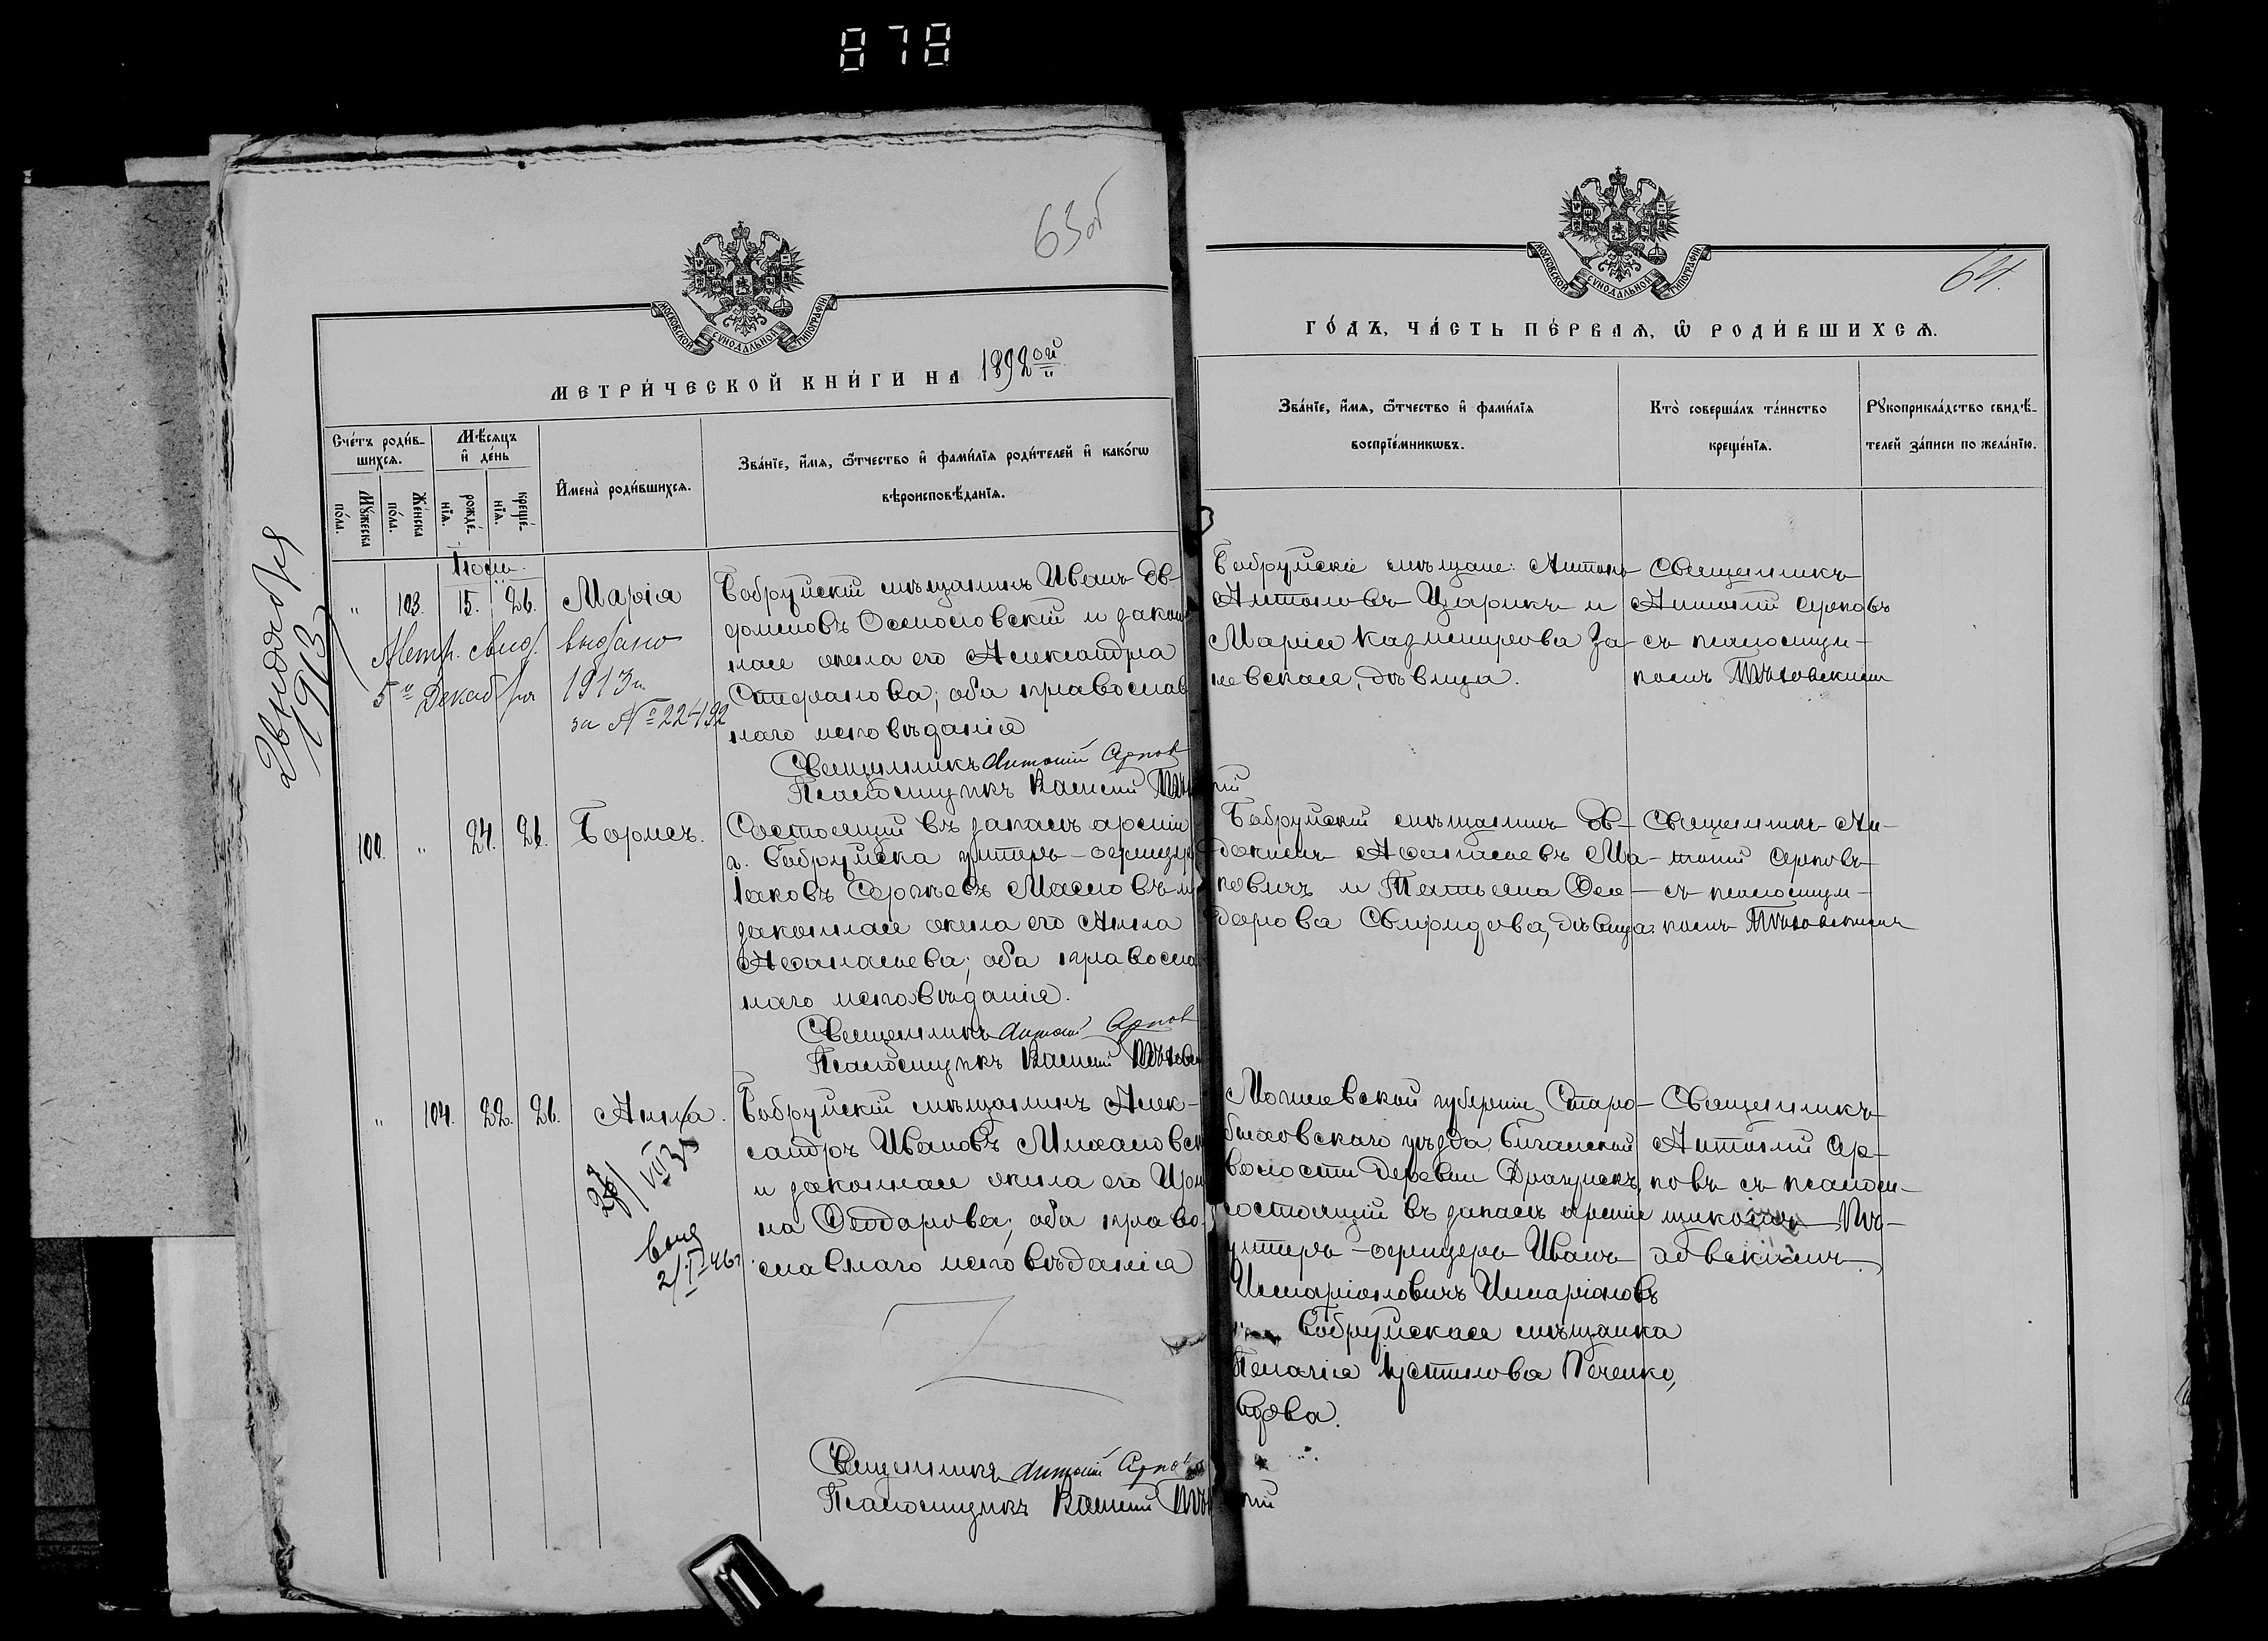 878
63об
МОСКОВСКОЙ СѴНОДАЛЬНОЙ ТИПОГРАФІИ
МЕТРИ́ЧЕСКОЙ КНИ́ГИ НА 1892ой
Сче́тъ роди́в-
шихсѧ.
Мꙋ́жеска
по́ла.
Же́нска
по́ла.
Мѣ́сѧцъ
и҆ де́нь
рожде́-
нїѧ.
креще́-
нїѧ.
И҆мена̀ роди́вшихсѧ.
Зва́нїе, и҆́мѧ, ѻ҆́тчество и҆ фами́лїѧ роди́телей и҆ како́гѡ
вѣроисповѣ́данїѧ.
Іюль.
" 103. 15. 26. Марія
Бобруйскій мѣщанинъ Иванъ Ев-
фимовъ Осмоловскій и закон-
ная жена его Александра
Стефанова; оба православ
наго исповѣданія
Священникъ Антоній Серпов
Псаломщикъ Василій
Метр. свид. выдано
5го Декабря 1913 г.
за № 22492
2 выдается
1913
100. " 24. 26. Борисъ.
Состоящій въ запасѣ арміи
г. Бобруйска унтеръ-офицер
Іаковъ Сергѣевъ Масловъ и
законная жена его Анна
Аѳанасьева; оба правосла
наго исповѣданія.
Священникъ Антоній Серпов
Псаломщикъ Василій
" 104. 22. 26. Анна.
Бобруйскій мѣщанинъ Алек-
сандръ Ивановъ Михаловск
и законная жена его Ири
на Ѳеодорова; оба право-
славнаго исповѣданія
VII 35
2/I 46г
Священникъ Антоній Серпов
Псаломщикъ Василій
64.
МОСКОВСКОЙ СѴНОДАЛЬНОЙ ТИПОГРАФІИ
ГО́ДЪ, ЧА́СТЬ ПЕ́РВАѦ, Ѽ РОДИ́ВШИХСѦ.
Зва́нїе, и҆́мѧ, ѻ҆́тчество и҆ фами́лїѧ
воспрїе́мникѡвъ.
Кто̀ соверша́лъ та́инство
креще́нїѧ.
Рꙋкоприкла́дство свидѣ́-
телей за́писи по жела́нїю.
Бобруйскіе мѣщане: Антонъ
Антоновъ Царикъ и
Марія Казимирова За-
невская, дѣвица.
Священникъ
Антоній Серповъ
съ псаломщи-
комъ
Бобруйскій мѣщанинъ Ев-
докимъ Аѳанасьевъ Ма-
кевичъ и Татьяна Ѳео-
дорова Свиридова, дѣвица.
Священникъ Ан-
тоній Серповъ
съ псаломщи-
комъ
Могилевской губерніи, Старо-
быховскаго уѣзда,
волости деревни
состоящій въ запасѣ арміи
унтеръ-офицеръ Иванъ
Иларіоновичъ Иларіоновъ
Бобруйская мѣщанка
Пелагія Іустинова Печенко,
вдова.
Священникъ
Антоній Сер-
повъ съ псалом-
щикомъ